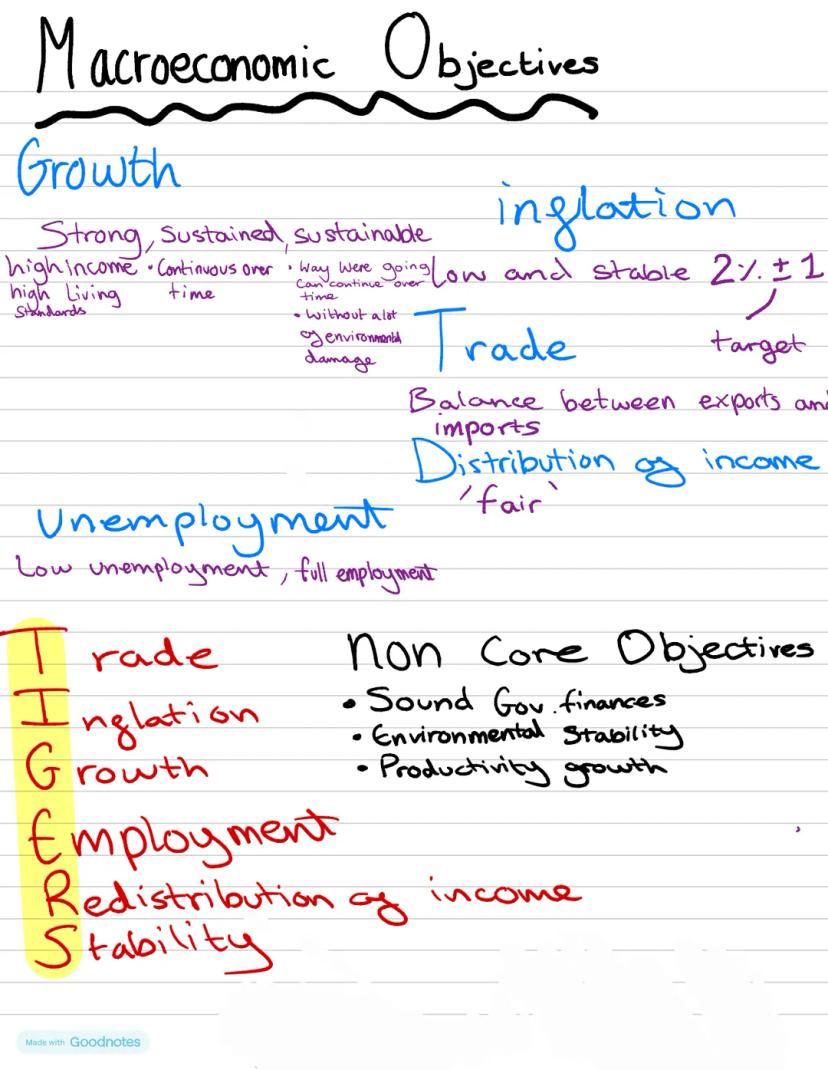 Macroeconomic Objectives
Growth
Strong, Sustained, sustainable
high income
high Living
Standards
• Continuous over
time
• Way were going
Can continue over
time
• Without a lot
of environmental
damage
inflation
Low and stable 2% ± 1
target
Trade
Balance between exports an
imports
Distribution of income
'fair'
Unemployment
Low unemployment, full employment
Trade
Inflation
Growth
Employment
Redistribution of income
Stability
Non Core Objectives
• Sound Gov. finances
• Environmental Stability
• Productivity growth
Made with Goodnotes